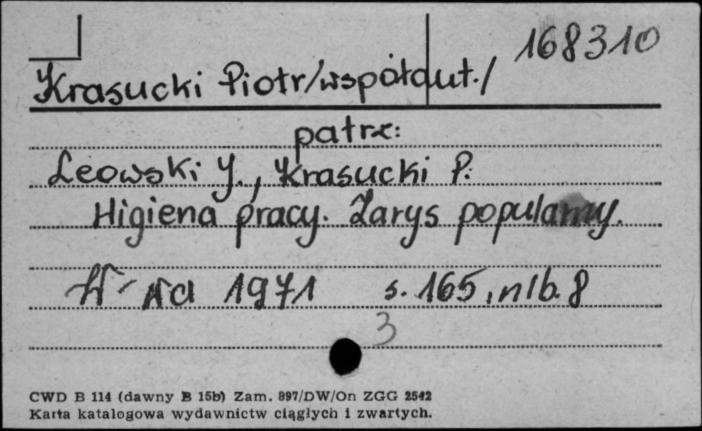 168310
Krasucki Piotr/współaut./
patrz:
Leowski J., Krasucki P.
Higiena pracy. Zarys popularny.
W-wa 1971 s. 165, nlb. 8
3
CWD B 114 (dawny B 15b) Zam. 897/DW/On ZGG 2542
Karta katalogowa wydawnictw ciągłych i zwartych.